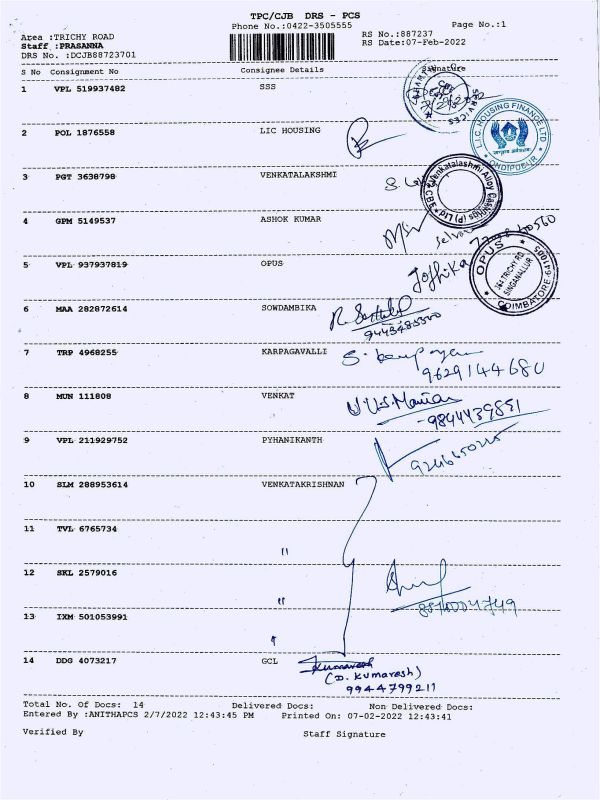 TPC/CJB DRS - PCS
Phone No.:0422-3505555
Page No.:1
Area :TRICHY ROAD
RS No.:887237
Staff :PRASANNA
RS Date:07-Feb-2022
DRS No. :DCJB88723701
S No Consignment No Consignee Details Signature
1 VPL 519937482 SSS
2 POL 1876558 LIC HOUSING
L.I.C. HOUSING FINANCE LTD
3 PGT 3638798 VENKATALAKSHMI
4 GPM 5149537 ASHOK KUMAR
5 VPL 937937819 OPUS
Jothika
OPUS
364 TRICHY RD.
SINGANALLUR
COIMBATORE-641005
6 MAA 282872614 SOWDAMBIKA
7 TRP 4968255 KARPAGAVALLI
9629144680
8 MUN 111808 VENKAT
9844439851
9 VPL 211929752 PYHANIKANTH
10 SLM 288953614 VENKATAKRISHNAN
11 TVL 6765734
"
12 SKL 2579016
"
13 IXM 501053991
"
14 DDG 4073217 GCL
Kumaresh
(D. Kumaresh)
9944799211
Total No. Of Docs: 14 Delivered Docs: Non Delivered Docs:
Entered By :ANITHAPCS 2/7/2022 12:43:45 PM Printed On: 07-02-2022 12:43:41
Verified By Staff Signature